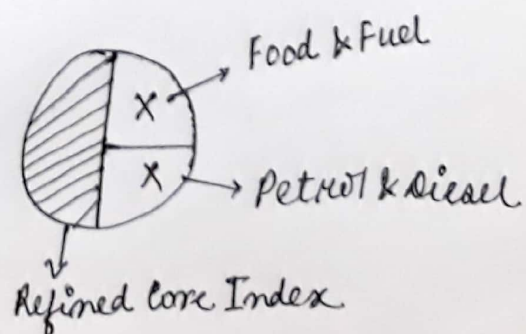 Food & Fuel
X
X
Petrol & Diesel
Refined Core Index